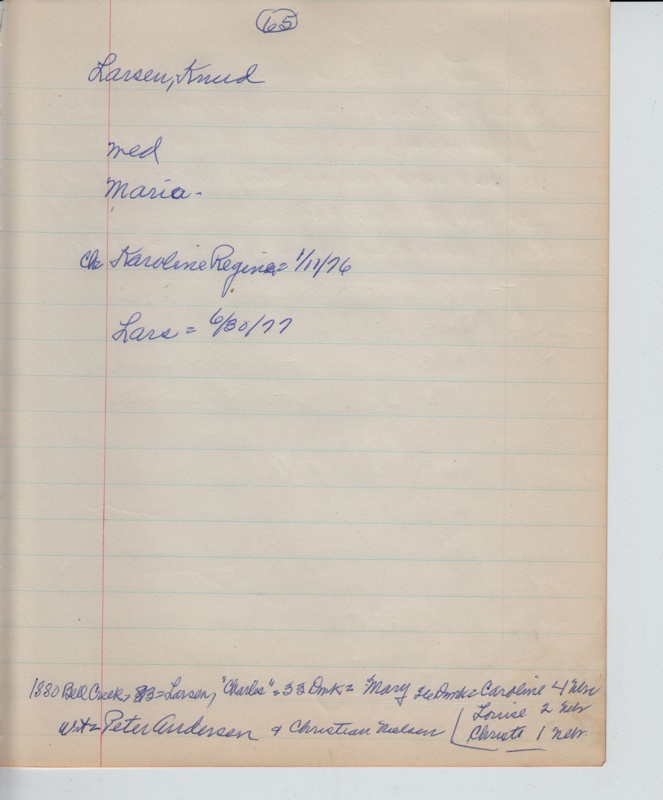 65
Larsen, Knud
med
Maria-
Ch= Karoline Regine = 1/11/76
Lars = 6/30/77
1880 Bell Creek, = Larsen, "Charles" = 33 Dmk = Mary Dmk = Caroline 4 Nebr
Louise 2 Nebr
wit = Peter Andersen & Christian Nielsen
Christ 1 Nebr